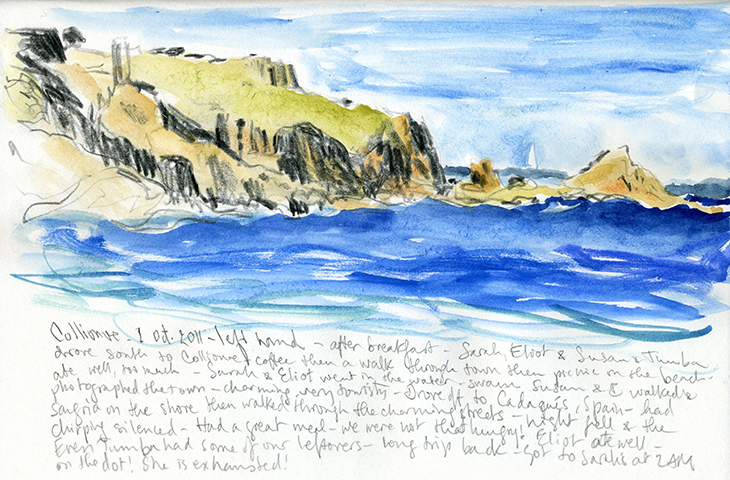 Collioure - 1 Oct. 2011 - left hand - after breakfast - Sarah, Eliot & Susan & Tumba
drove south to Collioure, coffee then a walk through town then picnic on the beach -
ate well, too much - Sarah & Eliot went in the water - swam Susan & E walked &
photographed the town - charming very touristy - Drove ft to Cadaqués, Spain - had
Sangria on the shore then walked through the charming streets - night fell & the
chirping silenced - Had a great meal - we were not that hungry! Eliot ate well -
Even Tumba had some of our leftovers - long trip back - got to Sarah's at 2AM
on the dot! She is exhausted!